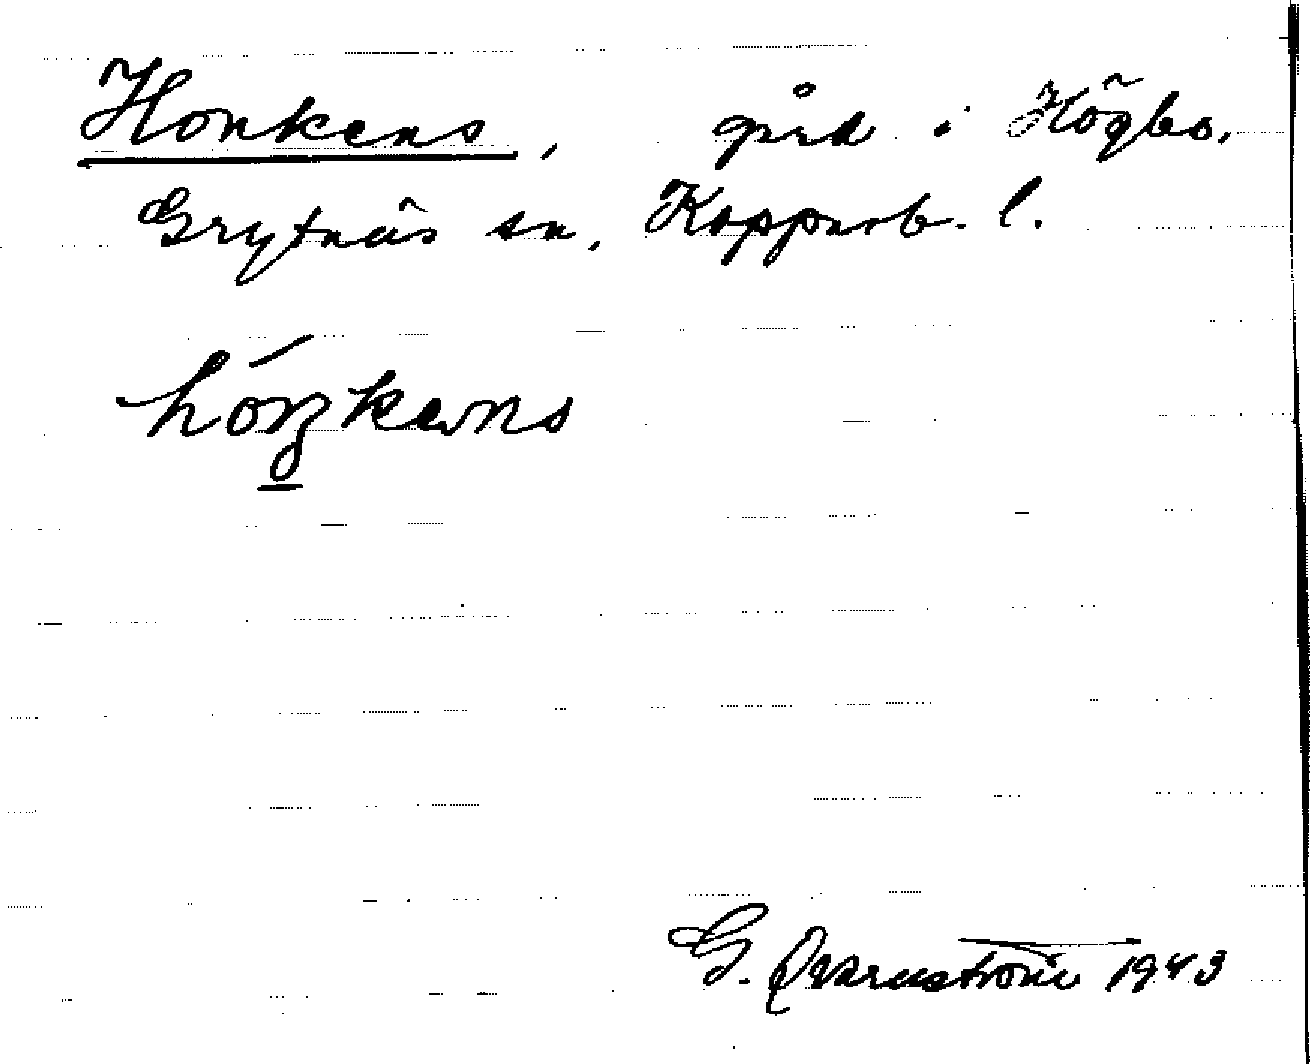 Honkens, gård i Högbo,
Grytnäs sn, Kopparb. l.
G. Qvarnström 1943